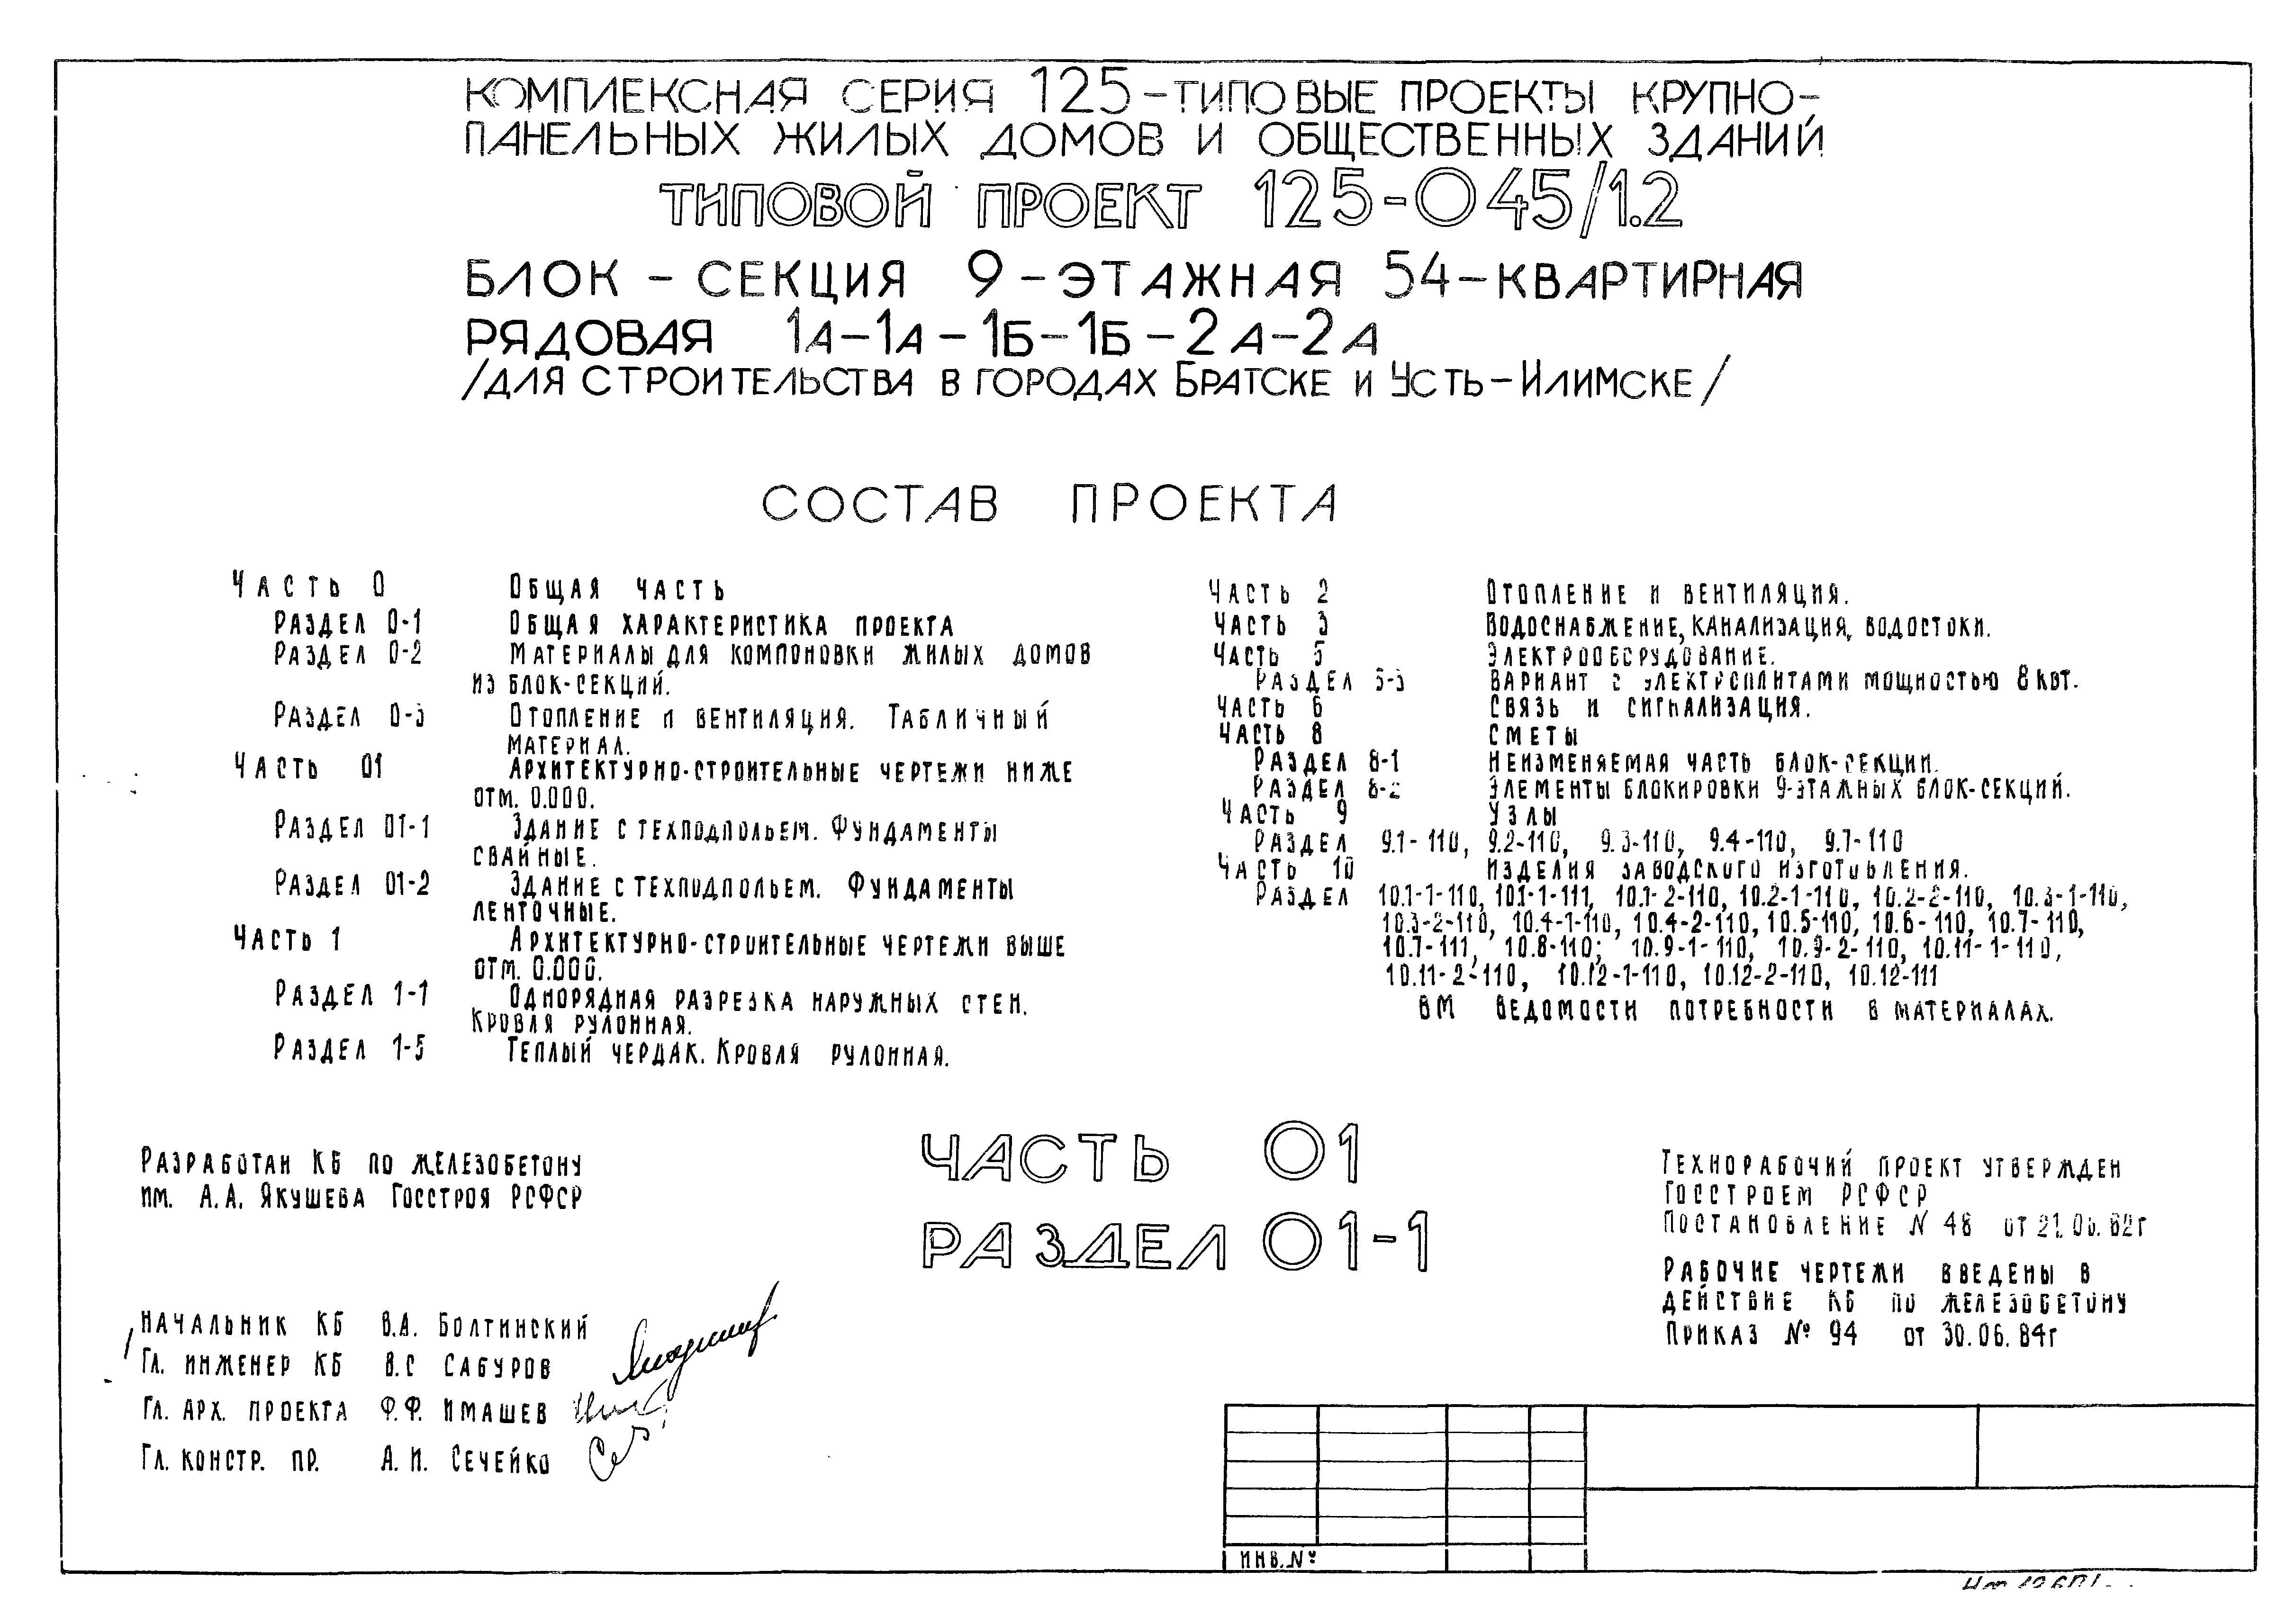 КОМПЛЕКСНАЯ СЕРИЯ 125-ТИПОВЫЕ ПРОЕКТЫ КРУПНО-
ПАНЕЛЬНЫХ ЖИЛЫХ ДОМОВ И ОБЩЕСТВЕННЫХ ЗДАНИЙ
ТИПОВОЙ ПРОЕКТ 125-045/1.2
БЛОК - СЕКЦИЯ 9-ЭТАЖНАЯ 54-КВАРТИРНАЯ
РЯДОВАЯ 1А-1А-1Б-1Б-2А-2А
/ДЛЯ СТРОИТЕЛЬСТВА В ГОРОДАХ БРАТСКЕ И УСТЬ-ИЛИМСКЕ/
СОСТАВ ПРОЕКТА
ЧАСТЬ 0 ОБЩАЯ ЧАСТЬ
РАЗДЕЛ 0-1 ОБЩАЯ ХАРАКТЕРИСТИКА ПРОЕКТА
РАЗДЕЛ 0-2 МАТЕРИАЛЫ ДЛЯ КОМПОНОВКИ ЖИЛЫХ ДОМОВ
ИЗ БЛОК-СЕКЦИЙ.
РАЗДЕЛ 0-3 ОТОПЛЕНИЕ И ВЕНТИЛЯЦИЯ. ТАБЛИЧНЫЙ
МАТЕРИАЛ.
ЧАСТЬ 01 АРХИТЕКТУРНО-СТРОИТЕЛЬНЫЕ ЧЕРТЕЖИ НИЖЕ
ОТМ. 0.000.
РАЗДЕЛ 01-1 ЗДАНИЕ С ТЕХПОДПОЛЬЕМ. ФУНДАМЕНТЫ
СВАЙНЫЕ.
РАЗДЕЛ 01-2 ЗДАНИЕ С ТЕХПОДПОЛЬЕМ. ФУНДАМЕНТЫ
ЛЕНТОЧНЫЕ.
ЧАСТЬ 1 АРХИТЕКТУРНО-СТРОИТЕЛЬНЫЕ ЧЕРТЕЖИ ВЫШЕ
ОТМ. 0.000.
РАЗДЕЛ 1-1 ОДНОРЯДНАЯ РАЗРЕЗКА НАРУЖНЫХ СТЕН.
КРОВЛЯ РУЛОННАЯ.
РАЗДЕЛ 1-5 ТЕПЛЫЙ ЧЕРДАК. КРОВЛЯ РУЛОННАЯ.
ЧАСТЬ 2 ОТОПЛЕНИЕ И ВЕНТИЛЯЦИЯ.
ЧАСТЬ 3 ВОДОСНАБЖЕНИЕ, КАНАЛИЗАЦИЯ, ВОДОСТОКИ.
ЧАСТЬ 5 ЭЛЕКТРООБОРУДОВАНИЕ.
РАЗДЕЛ 5-3 ВАРИАНТ С ЭЛЕКТРОПЛИТАМИ МОЩНОСТЬЮ 8 КВТ.
ЧАСТЬ 6 СВЯЗЬ И СИГНАЛИЗАЦИЯ.
ЧАСТЬ 8 СМЕТЫ
РАЗДЕЛ 8-1 НЕИЗМЕНЯЕМАЯ ЧАСТЬ БЛОК-СЕКЦИИ.
РАЗДЕЛ 8-2 ЭЛЕМЕНТЫ БЛОКИРОВКИ 9-ЭТАЖНЫХ БЛОК-СЕКЦИЙ.
ЧАСТЬ 9 УЗЛЫ
РАЗДЕЛ 9.1-110, 9.2-110, 9.3-110, 9.4-110, 9.7-110
ЧАСТЬ 10 ИЗДЕЛИЯ ЗАВОДСКОГО ИЗГОТОВЛЕНИЯ.
РАЗДЕЛ 10.1-1-110, 10.1-1-111, 10.1-2-110, 10.2-1-110, 10.2-2-110, 10.3-1-110,
10.3-2-110, 10.4-1-110, 10.4-2-110, 10.5-110, 10.6-110, 10.7-110,
10.7-111, 10.8-110; 10.9-1-110, 10.9-2-110, 10.11-1-110,
10.11-2-110, 10.12-1-110, 10.12-2-110, 10.12-111
ВМ ВЕДОМОСТИ ПОТРЕБНОСТИ В МАТЕРИАЛАХ.
РАЗРАБОТАН КБ ПО ЖЕЛЕЗОБЕТОНУ
ИМ. А.А. ЯКУШЕВА ГОССТРОЯ РСФСР
ЧАСТЬ 01
РАЗДЕЛ 01-1
ТЕХНОРАБОЧИЙ ПРОЕКТ УТВЕРЖДЕН
ГОССТРОЕМ РСФСР
ПОСТАНОВЛЕНИЕ N 48 ОТ 21.06.82г
РАБОЧИЕ ЧЕРТЕЖИ ВВЕДЕНЫ В
ДЕЙСТВИЕ КБ ПО ЖЕЛЕЗОБЕТОНУ
ПРИКАЗ № 94 ОТ 30.06.84г
НАЧАЛЬНИК КБ В.А. БОЛТИНСКИЙ
ГЛ. ИНЖЕНЕР КБ В.С САБУРОВ
ГЛ. АРХ. ПРОЕКТА Ф.Ф. ИМАШЕВ
ГЛ. КОНСТР. ПР. А.И. СЕЧЕЙКО
ИНВ. №